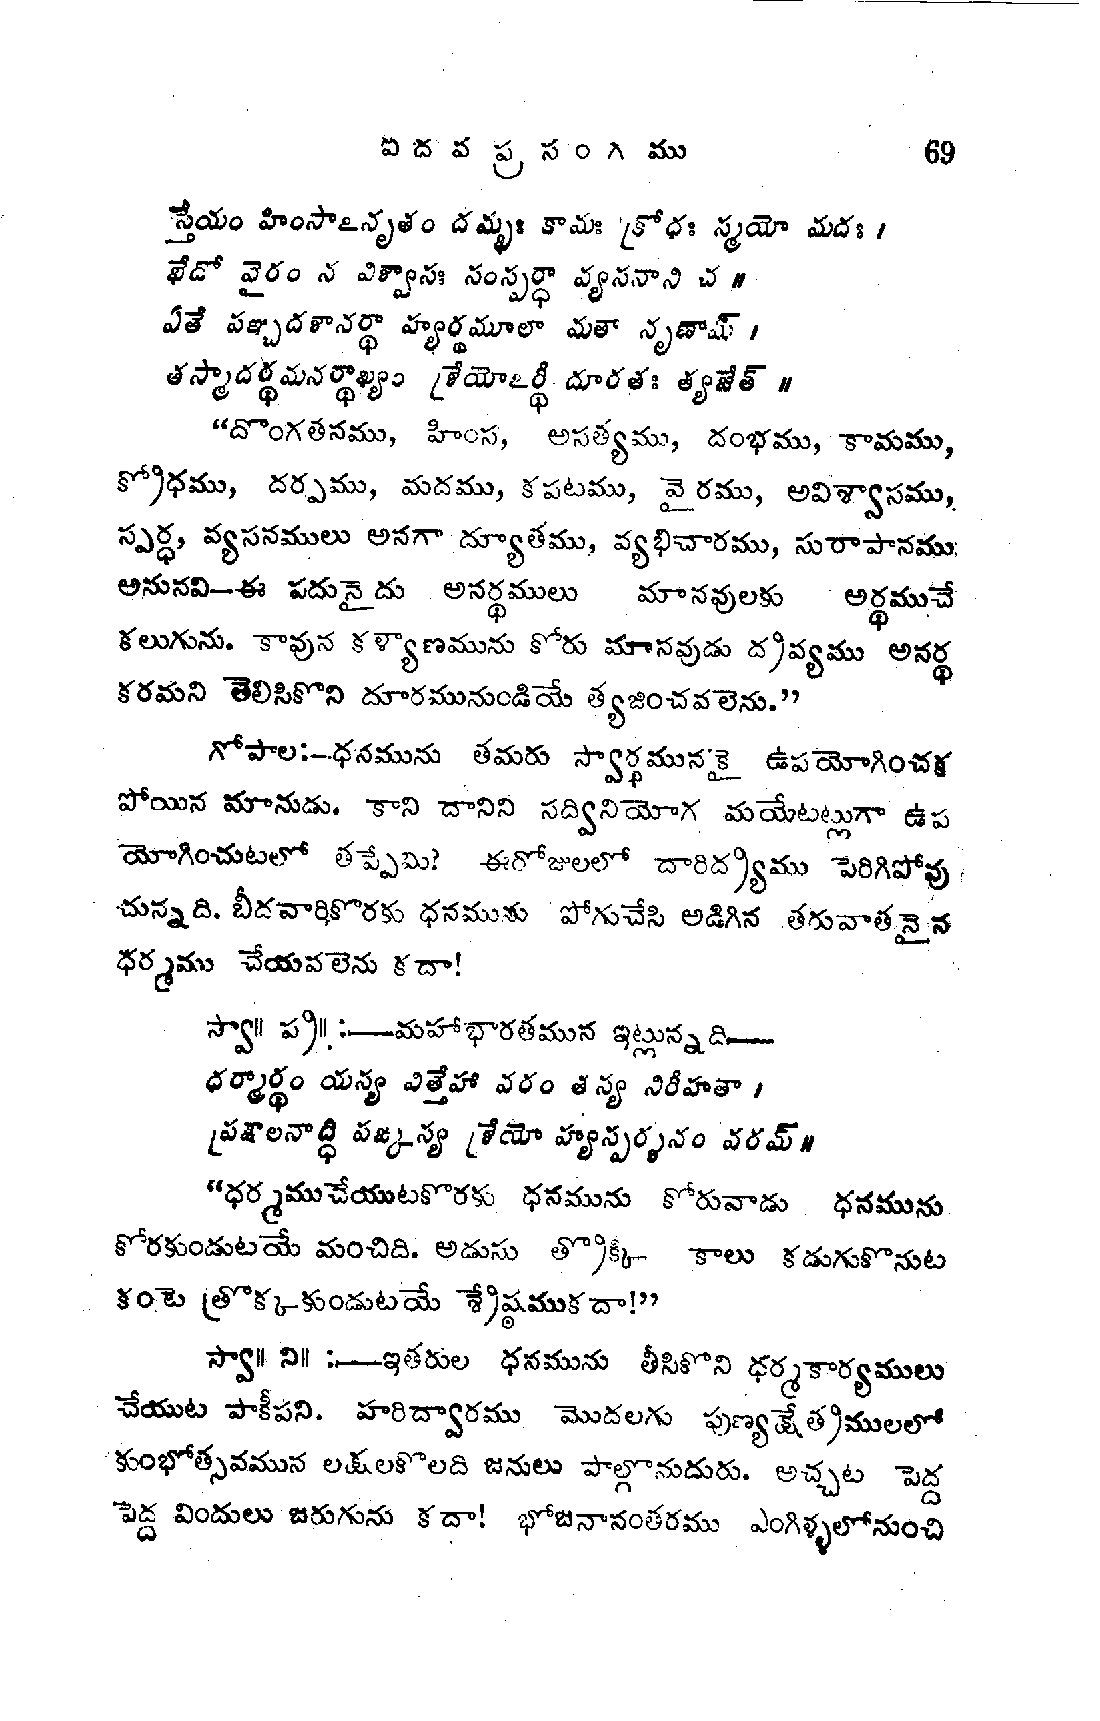 ఐదవ ప్రసంగము 69
స్తేయం హింసాఽనృతం దమ్భః కామః క్రోధః స్మయో మదః ।
ఖేదో వైరం న విశ్వాసః సంస్పర్ధా వ్యసనాని చ ॥
ఏతే పఞ్చదశానర్థా హ్యర్థమూలా మతా నృణామ్ ।
తస్మాదర్థమనర్థాఖ్యం శ్రేయోఽర్థీ దూరతః త్యజేత్ ॥
“దొంగతనము, హింస, అసత్యము, దంభము, కామము,
క్రోధము, దర్పము, మదము, కపటము, వైరము, అవిశ్వాసము,
స్పర్ధ, వ్యసనములు అనగా ద్యూతము, వ్యభిచారము, సురాపానము
అనునవి—ఈ పదునైదు అనర్థములు మానవులకు అర్థముచే
కలుగును. కావున కళ్యాణమును కోరు మానవుడు ద్రవ్యము అనర్థ
కరమని తెలిసికొని దూరమునుండియే త్యజించవలెను.”
గోపాల:—ధనమును తమరు స్వార్థమునకై ఉపయోగించక
పోయిన మానుడు. కాని దానిని సద్వినియోగ మయేటట్లుగా ఉప
యోగించుటలో తప్పేమి? ఈరోజులలో దారిద్ర్యము పెరిగిపోవు
చున్నది. బీదవారికొరకు ధనముకు పోగుచేసి అడిగిన తరువాతనైన
ధర్మము చేయవలెను కదా!
స్వా॥ ప్ర॥ :—మహాభారతమున ఇట్లున్నది—
ధర్మార్థం యస్య విత్తేహా వరం తస్య నిరీహతా ।
ప్రక్షాలనాద్ధి పఙ్కస్య శ్రేయో హ్యస్పర్శనం వరమ్॥
“ధర్మముచేయుటకొరకు ధనమును కోరువాడు ధనమును
కోరకుండుటయే మంచిది. అడుసు త్రొక్కి కాలు కడుగుకొనుట
కంటె త్రొక్కకుండుటయే శ్రేష్ఠముకదా!”
స్వా॥ ని॥ :—ఇతరుల ధనమును తీసికొని ధర్మకార్యములు
చేయుట పాకీపని. హరిద్వారము మొదలగు పుణ్యక్షేత్రములలో
కుంభోత్సవమున లక్షలకొలది జనులు పాల్గొనుదురు. అచ్చట పెద్ద
పెద్ద విందులు జరుగును కదా! భోజనానంతరము ఎంగిళ్ళలోనుంచి